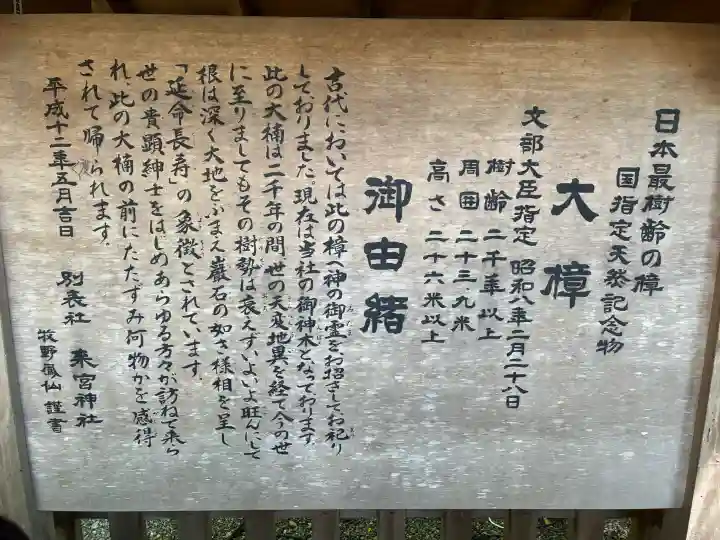 日本最樹齢の樟
国指定天然記念物
大樟
文部大臣指定 昭和八年二月二十八日
樹齢 二千年以上
周囲 二十三、九米
高さ 二十六米以上
御由緒
古代においては此の樟へ神の御霊をお招きしてお祀り
しておりました現在は当社の御神木となっております
此の大楠は二千年の間、世の天変地異を経て今の世
に至りましてもその樹勢は衰えずいよいよ旺んにて
根は深く大地をふまえ巌石の如き様相を呈し
「延命長寿」の象徴とされています。
世の貴顕紳士をはじめあらゆる方々が訪ねて来ら
れ、此の大楠の前にたたずみ何物かを感得
されて帰られます。
平成十二年五月吉日
別表社 来宮神社
牧野 仙 謹書